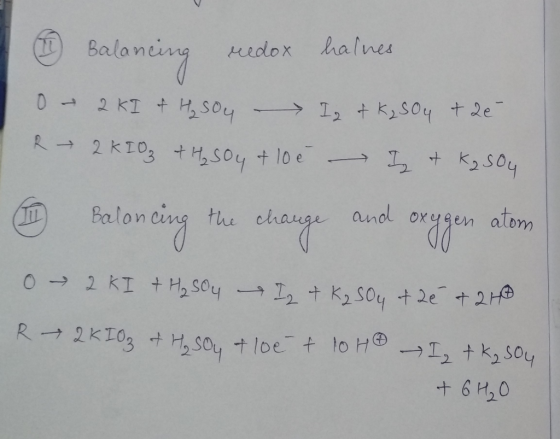 II Balancing redox halves
O → 2 KI + H₂SO₄ ⟶ I₂ + K₂SO₄ + 2e⁻
R → 2 KIO₃ + H₂SO₄ + 10e⁻ ⟶ I₂ + K₂SO₄
III Balancing the charge and oxygen atom
O → 2 KI + H₂SO₄ → I₂ + K₂SO₄ + 2e⁻ + 2H⊕
R → 2KIO₃ + H₂SO₄ + 10e⁻ + 10 H⊕ → I₂ + K₂SO₄
+ 6 H₂O